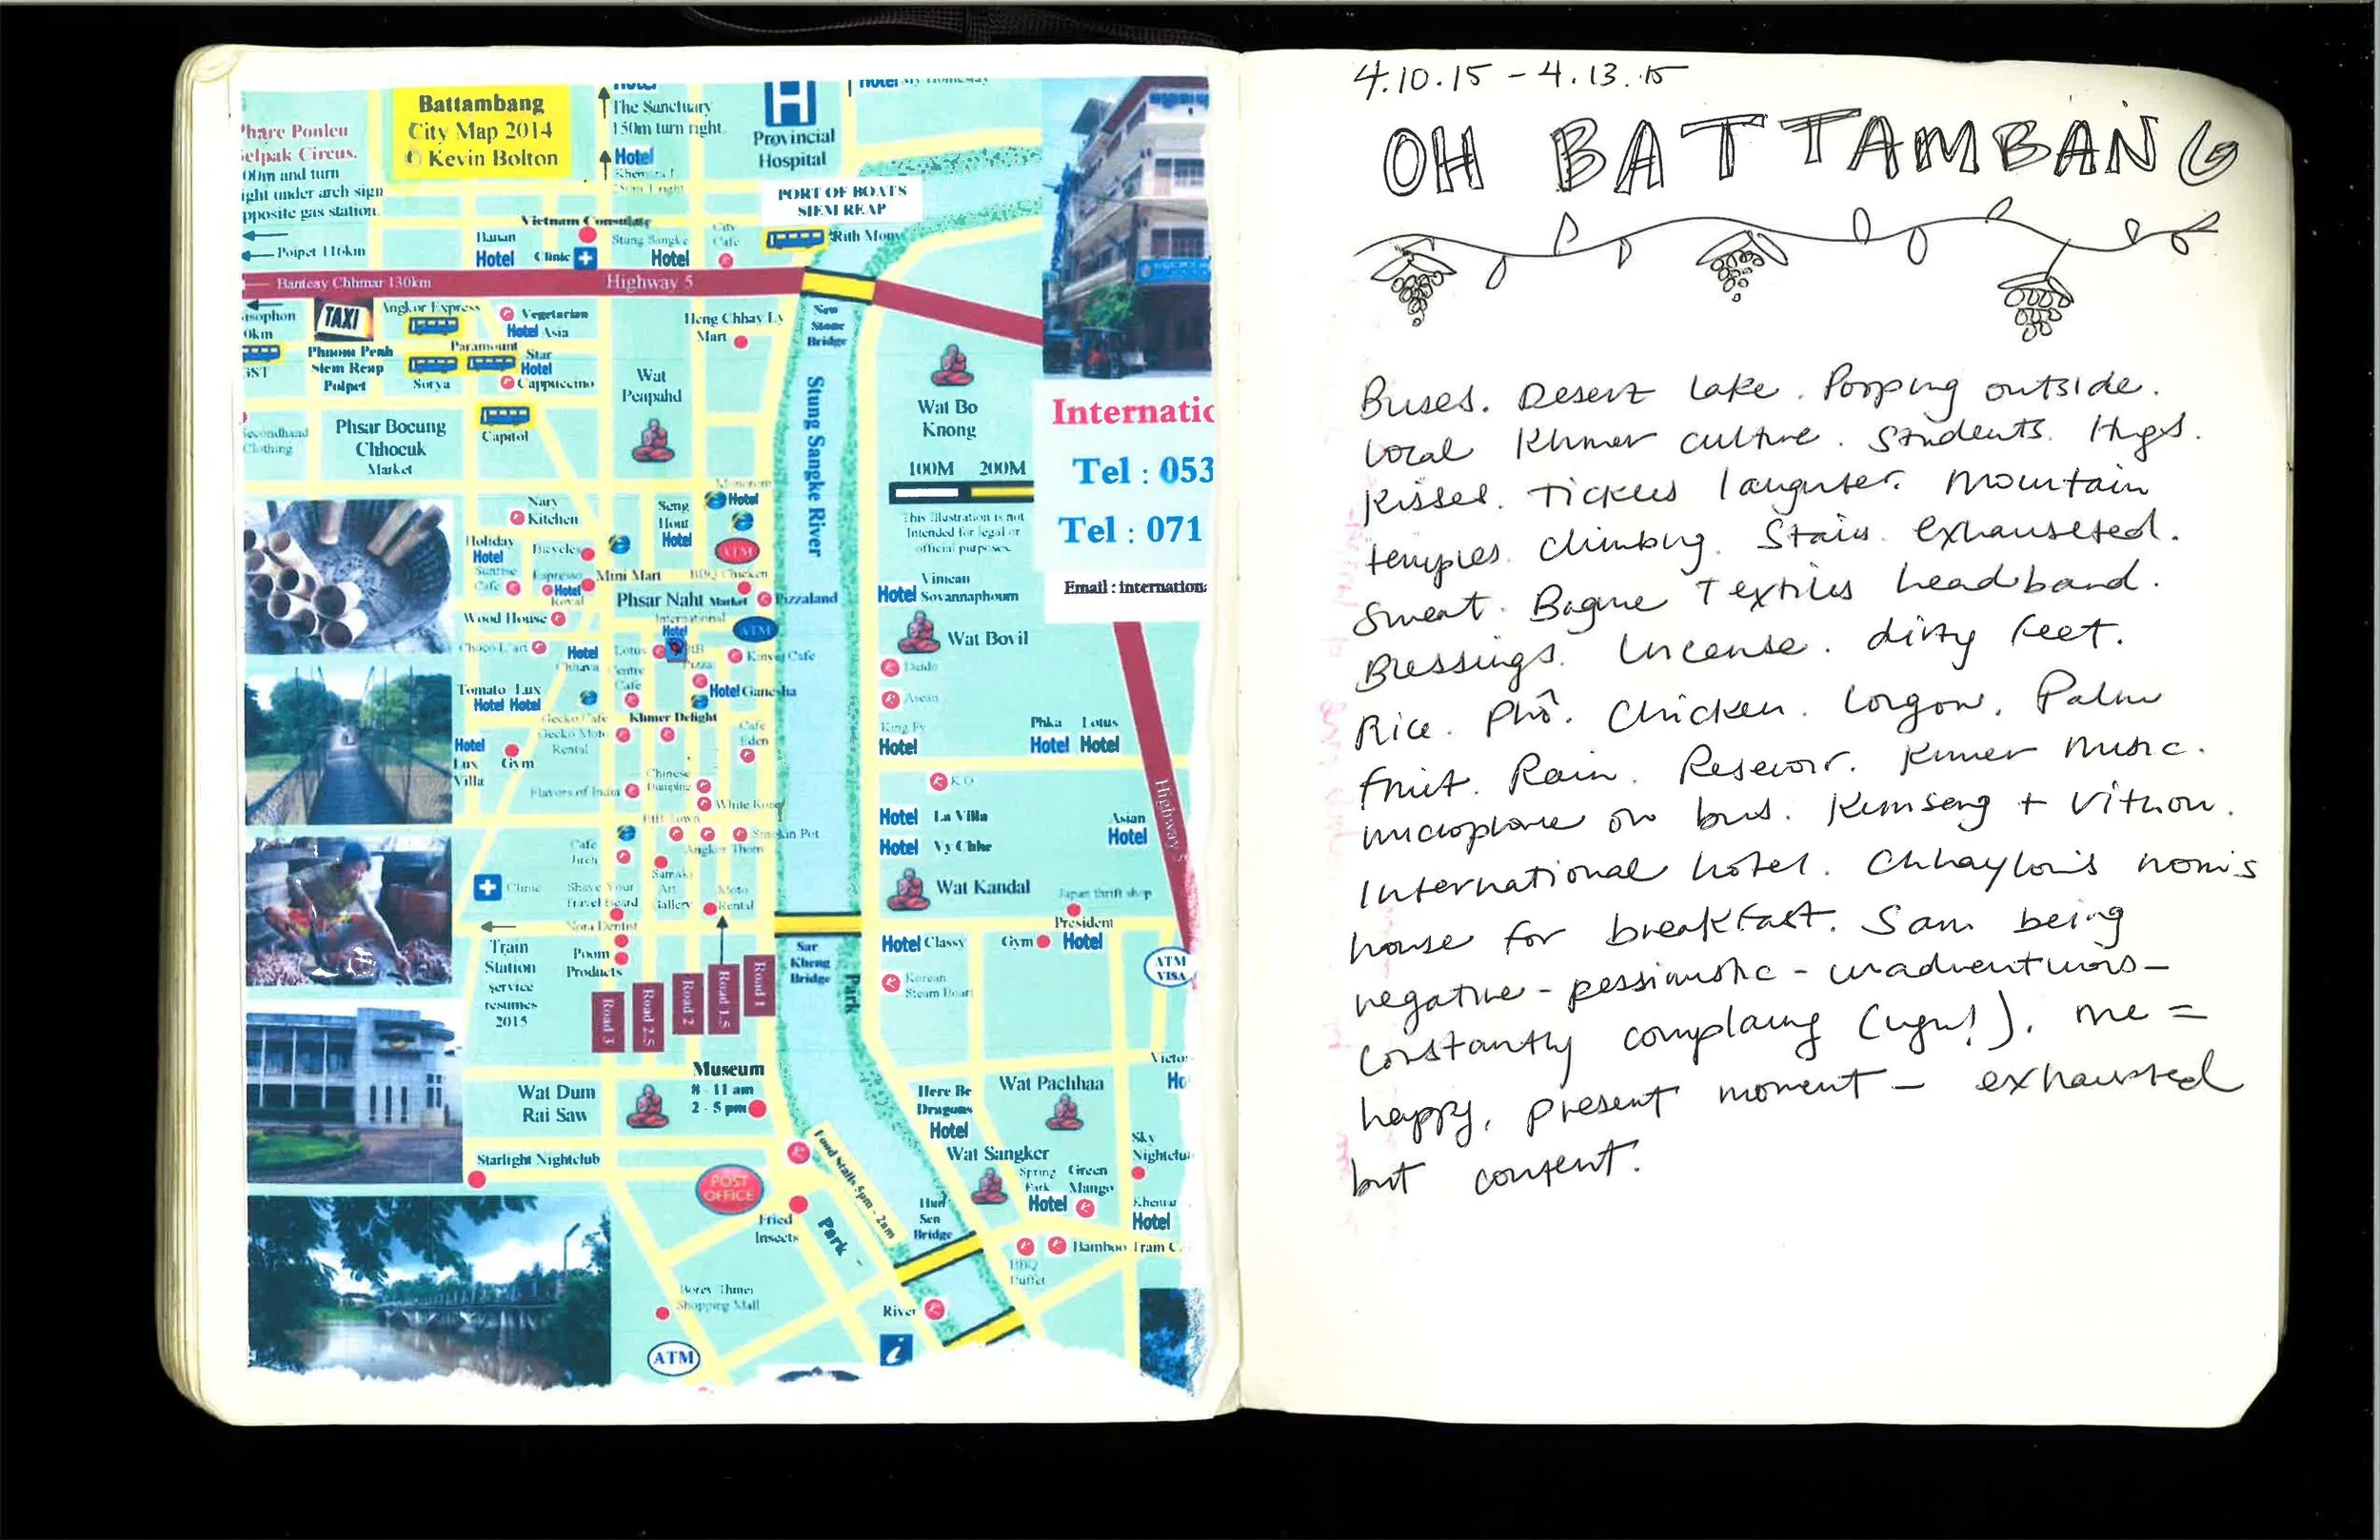 Battambang
City Map 2014
© Kevin Bolton
Phare Ponleu
Selpak Circus.
00m and turn
ight under arch sign
pposite gas station.
Poipet 116km
Hotel
The Sanctuary
150m turn right
Hotel
H
Provincial
Hospital
PORT OF BOATS
SIEM REAP
Rith Mony
Vietnam Consulate
Banan
Hotel
Clinic
Stung Sangke
Hotel
City
Cafe
Banteay Chhmar 130km
Highway 5
New
Stone
Bridge
isophon
0km
TAXI
Phnom Penh
Siem Reap
Poipet
Angkor Express
Paramount
Sorya
Vegetarian
Hotel Asia
Star
Hotel
Cappuccino
Heng Chhay Ly
Mart
Wat
Peapahd
Secondhand
Clothing
Phsar Boeung
Chhocuk
Market
Capitol
Stung Sangke River
Wat Bo
Knong
100M 200M
This illustration is not
Intended for legal or
official purposes.
Internatio
Tel : 053
Tel : 071
Email : internationa
Nary
Kitchen
Seng
Hout
Hotel
Hotel
ATM
Holiday
Hotel
Bicycles
Sunrise
Cafe
Espresso
Hotel
Royal
Mini Mart
BBQ Chicken
Phsar Naht Market
Pizzaland
Wood House
International
Hotel
ATM
Choco L'art
Hotel
Chhaya
Lotus
Kinyei Cafe
Tomato Lux
Hotel Hotel
Cafe
Hotel Ganesha
Gecko Cafe
Khmer Delight
Gecko Moto
Rental
Cafe
Eden
Hotel
Lux
Villa
Gym
Flavors of India
Chinese
Dumpling
White Rose
Smokin Pot
Angkor Thom
Cafe
Jireh
Clinic
Shave Your
Travel Beard
Samaki
Art
Gallery
Moto
Rental
Nora Dentist
Train
Station
service
resumes
2015
Poom
Products
Road 3
Road 2.5
Road 2
Road 1.5
Road 1
Sar
Kheng
Bridge
Park
Vimean
Hotel Sovannaphoum
Wat Bovil
Asean
King Fy
Hotel
Phka Lotus
Hotel Hotel
K.O
Hotel La Villa
Hotel Vy Chhe
Asian
Hotel
Highway 5
Wat Kandal
Japan thrift shop
President
Hotel Classy
Gym
Hotel
Korean
ATM
VISA
Museum
8 - 11 am
2 - 5 pm
Wat Dum
Rai Saw
Here Be
Dragons
Hotel
Wat Pachhaa
Starlight Nightclub
POST
OFFICE
Food Stalls 4pm - 2am
Fried
Insects
Park
Wat Sangker
Spring
Park
Hotel
Green
Mango
Sky
Nightclu
Khemar
Hotel
Hun
Sen
Bridge
Bamboo Train C
BBQ
Buffet
River
Shopping Mall
ATM
i
4.10.15 - 4.13.15
OH BATTAMBANG
Buses. Desert Lake. Pooping outside.
Local Khmer culture. Students. Hugs.
Kisses. Tickles laughter. Mountain
temples. Climbing. Stairs. Exhauseted.
Sweat. Bogue Textiles headband.
Blessings. Incense. dirty feet.
Rice. Phô. Chicken. Lorgow. Palm
fruit. Rain. Resevoir. Kmer Music.
microphone on bus. Kimseng + Vithou.
International hotel. Chhaylon's mom's
house for breakfast. Sam being
negative - pessimistic - unadventurous -
constantly complaing (ugh!). me =
happy, present moment - exhausted
but content.